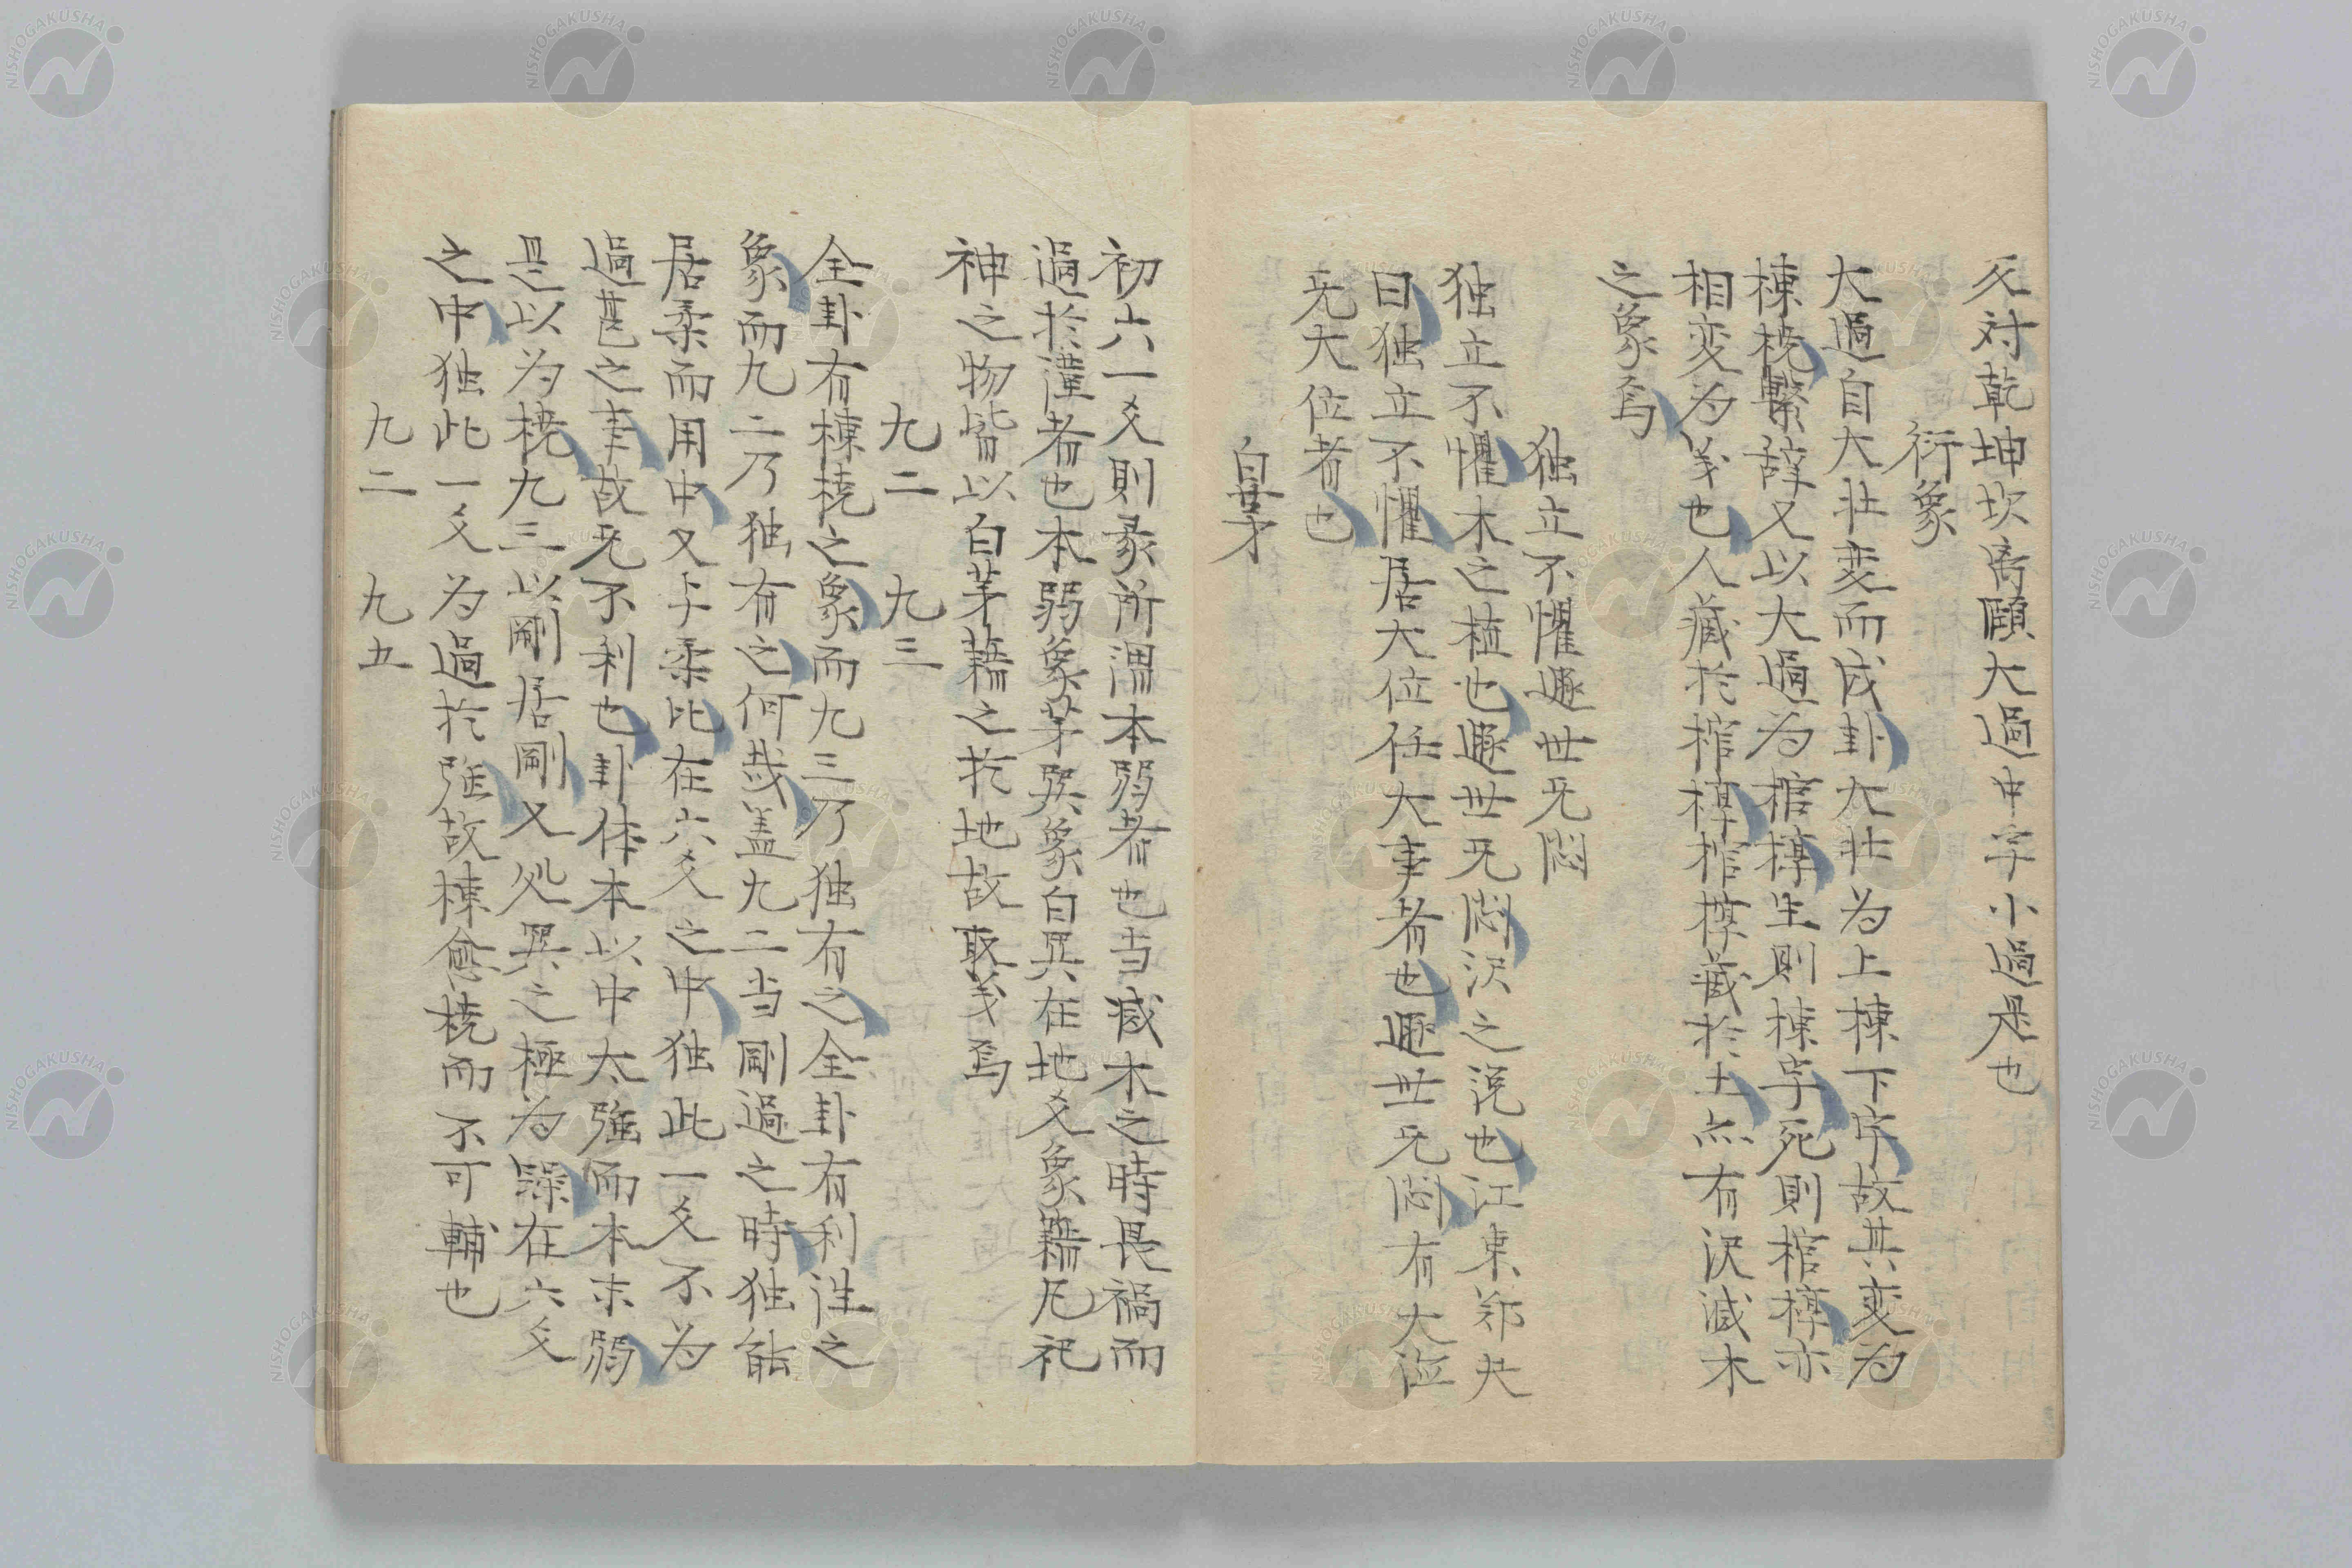 反対乾坤坎离頤大過中孚小過是也
衍象
大過自大壮変而成卦大壮为上棟下宇故其変为
棟橈繫辞又以大過为棺椁生則棟宇死則棺椁亦
相変为义也人藏於棺椁棺椁藏於土亦有沢滅木
之象焉
独立不懼遯世无悶
独立不懼木之植也遯世无悶沢之説也江東郑夬
曰独立不懼居大位任大事者也遯世无悶有大位
无大位者也
白茅
初六一爻則彖所謂本弱者也当滅木之時畏禍而
過於謹者也本弱象茅巽象白巽在地爻象藉凡祀
神之物皆以白茅藉之於地故取义焉
九二 九三
全卦有棟橈之象而九三乃独有之全卦有利往之
象而九二乃独有之何哉盖九二当剛過之時独能
居柔而用中又与柔比在六爻之中独此一爻不为
過甚之事故无不利也卦体本以中太强而本末弱
是以为橈九三以剛居剛又処巽之極为躁在六爻
之中独此一爻为過於强故棟愈橈而不可輔也
九二 九五
NISHOGAKUSHA